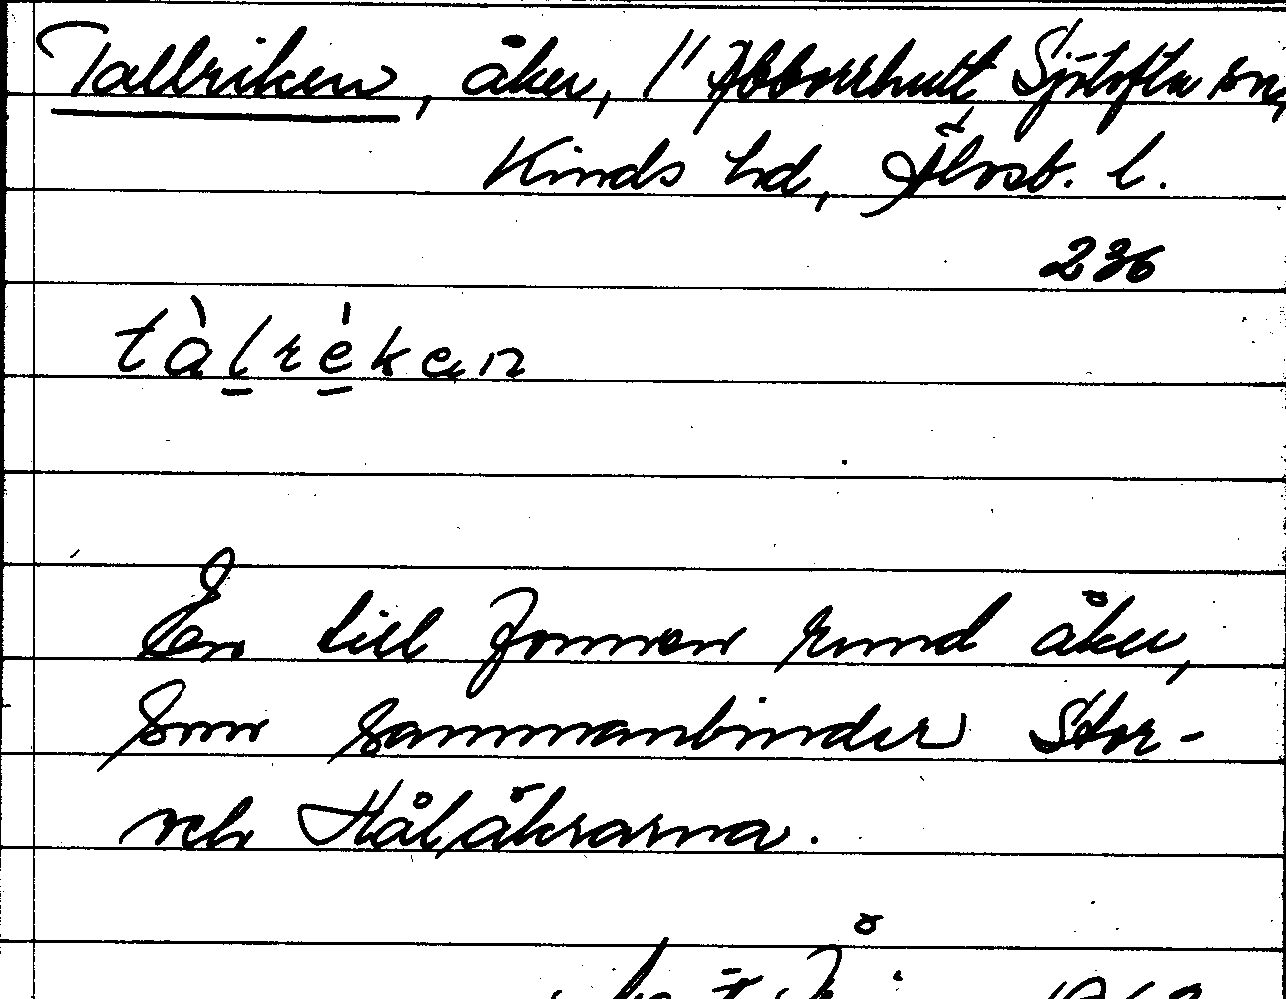 Tallriken, åker, 1/1 Abborrhult Sjötofta sn,
Kinds hd, Älvsb. l.
236
tàlrék​en
En till formen rund åker,
som sammanbinder Stor-
och Hålåkrarna.